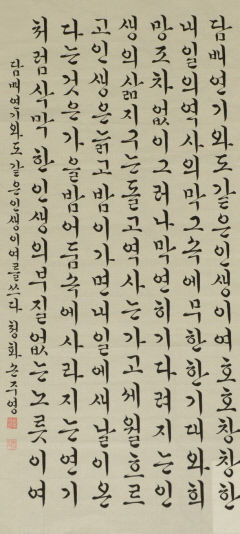 담배연기와도같은인생이여호호창창한
내일의역사의막그속에무한한기대와희
망조차없이그러나막연히기다려지는인
생의삶지구는돌고역사는가고세월흐르
고인생은늙고밤이가면내일에새날이온
다는것은가을밤어둠속에사라지는연기
처럼삭막한인생의부질없는노릇이여
담배연기와도같은인생이여를쓰다 손주영